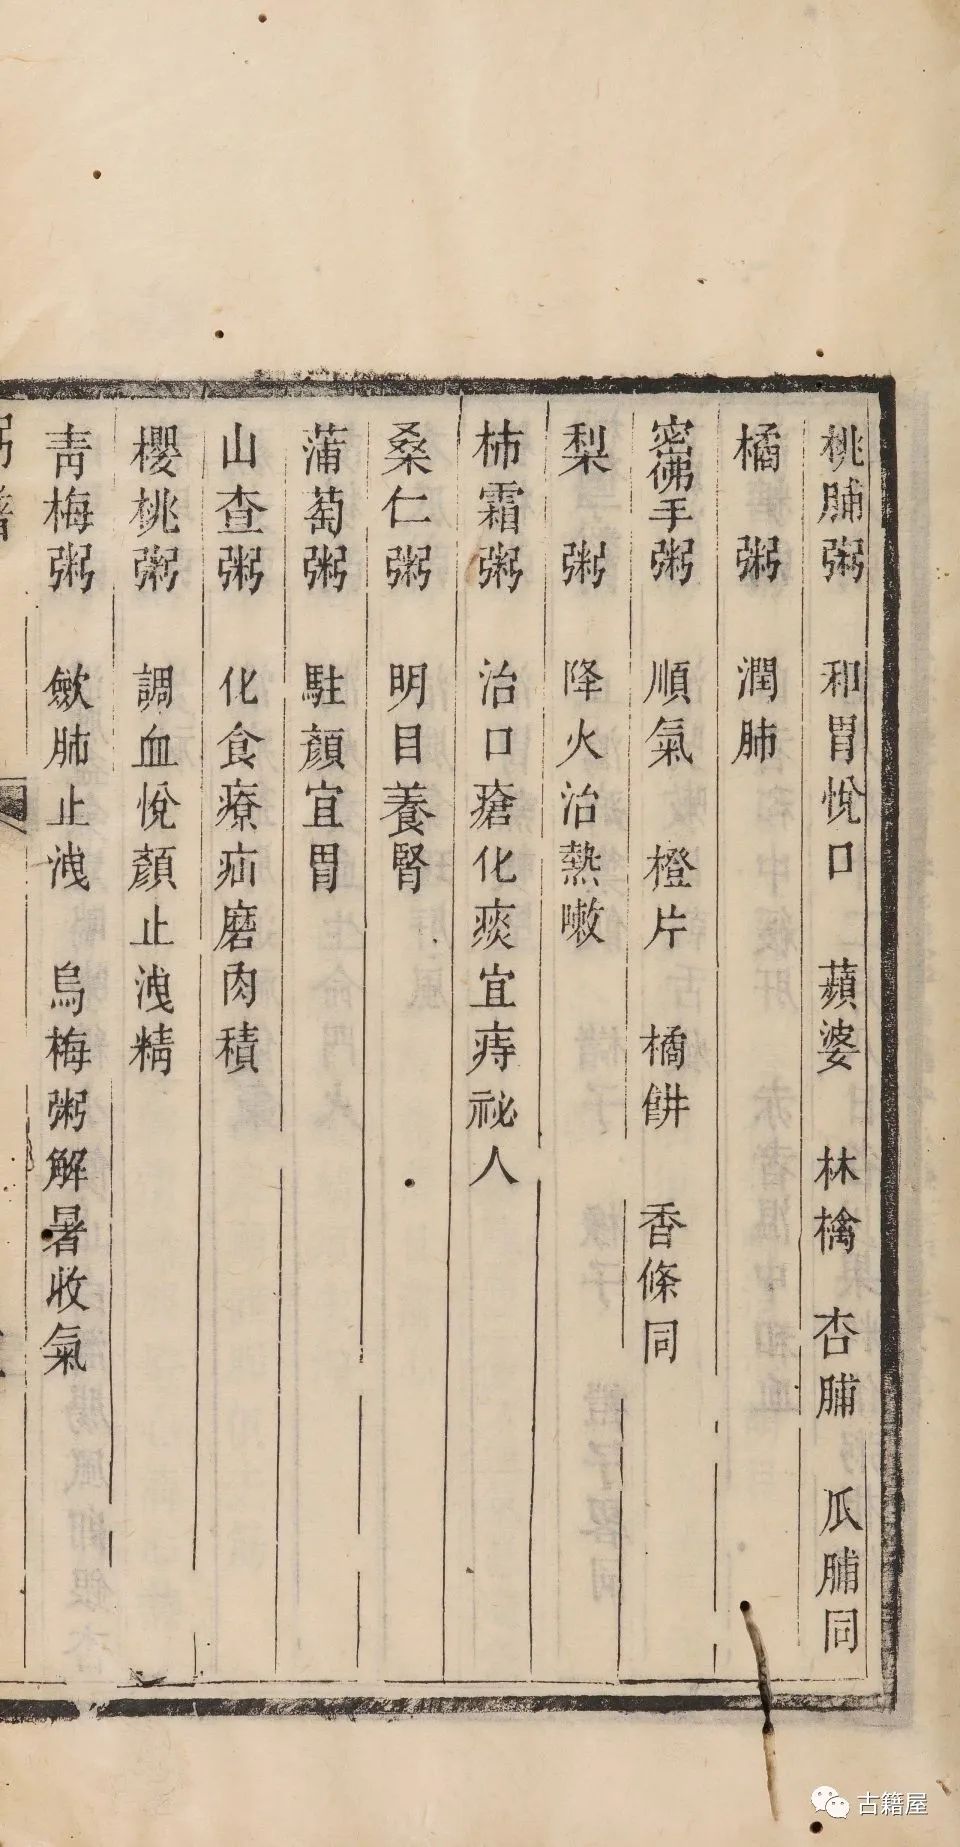 桃脯粥 和胃悅口 蘋婆 林檎 杏脯 瓜脯同
橘粥 潤肺
密佛手粥 順氣 橙片 橘餅 香條同
梨粥 降火治熱嗽
柿霜粥 治口瘡化痰宜痔祕人
桑仁粥 明目養腎
蒲萄粥 駐顏宜胃
山查粥 化食療疝磨肉積
櫻桃粥 調血悅顏止洩精
靑梅粥 斂肺止洩 烏梅粥解暑收氣
粥譜
古籍屋